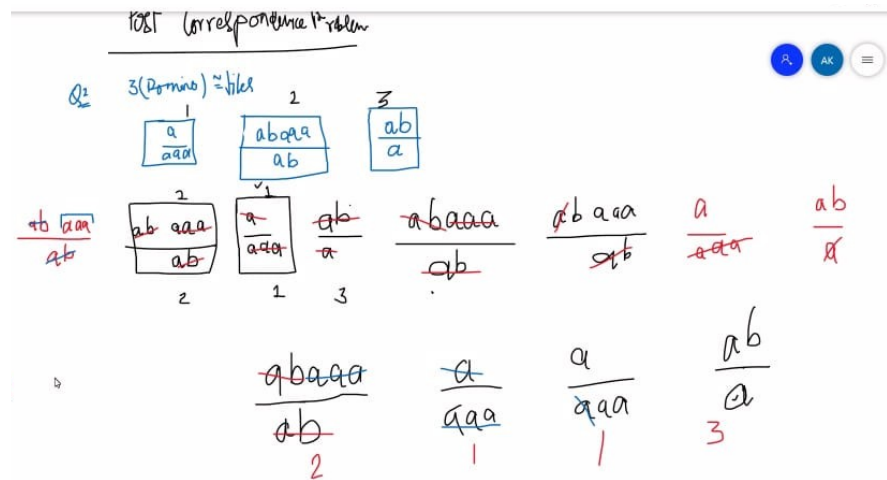 Post Correspondence Problem
Q: 3(Domino) ≅ tiles
1 2 3
a abaaa ab
aaa ab a
2 1
ab aaa ab aaa a ab abaaa abaaa a ab
ab ab aaa a ab ab aaa a
2 1 3
abaaa a a ab
ab aaa aaa a
2 1 1 3
AK